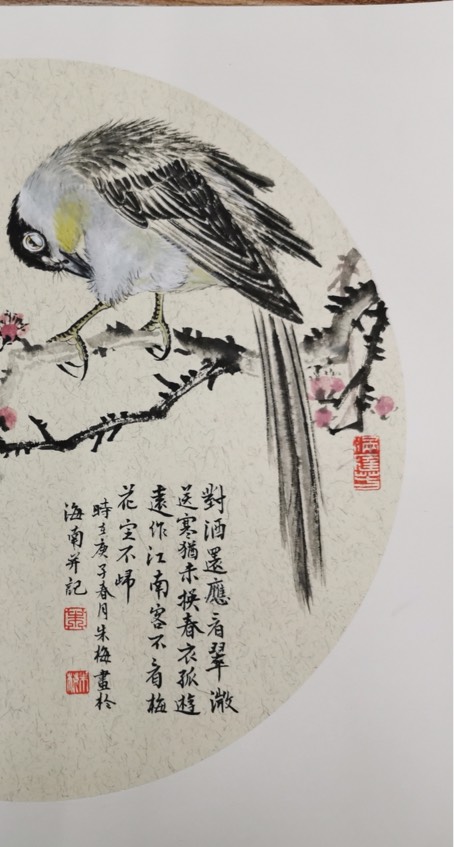 對酒還應看翠微
送寒猶未換春衣孤遊
遠作江南客不看梅
花定不歸
時在庚子春月朱梅畫於
海南并記